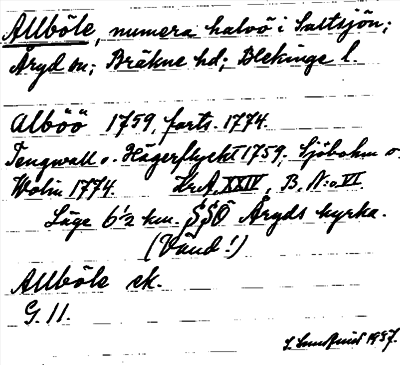 Allböle, numera halvö i Saltsjön;
Åryd sn; Bräkne hd; Blekinge l.
Alböö 1759, forts. 1774.
Tengwall o. Hägerflyckt 1759. Sjöbohm o.
Wolin 1774. Kr.A. XXIV, B. N:o VI
Läge 6 1/2 km. SSO Åryds kyrka.
(Vänd!)
Allböle ek.
G. 11.
1937.